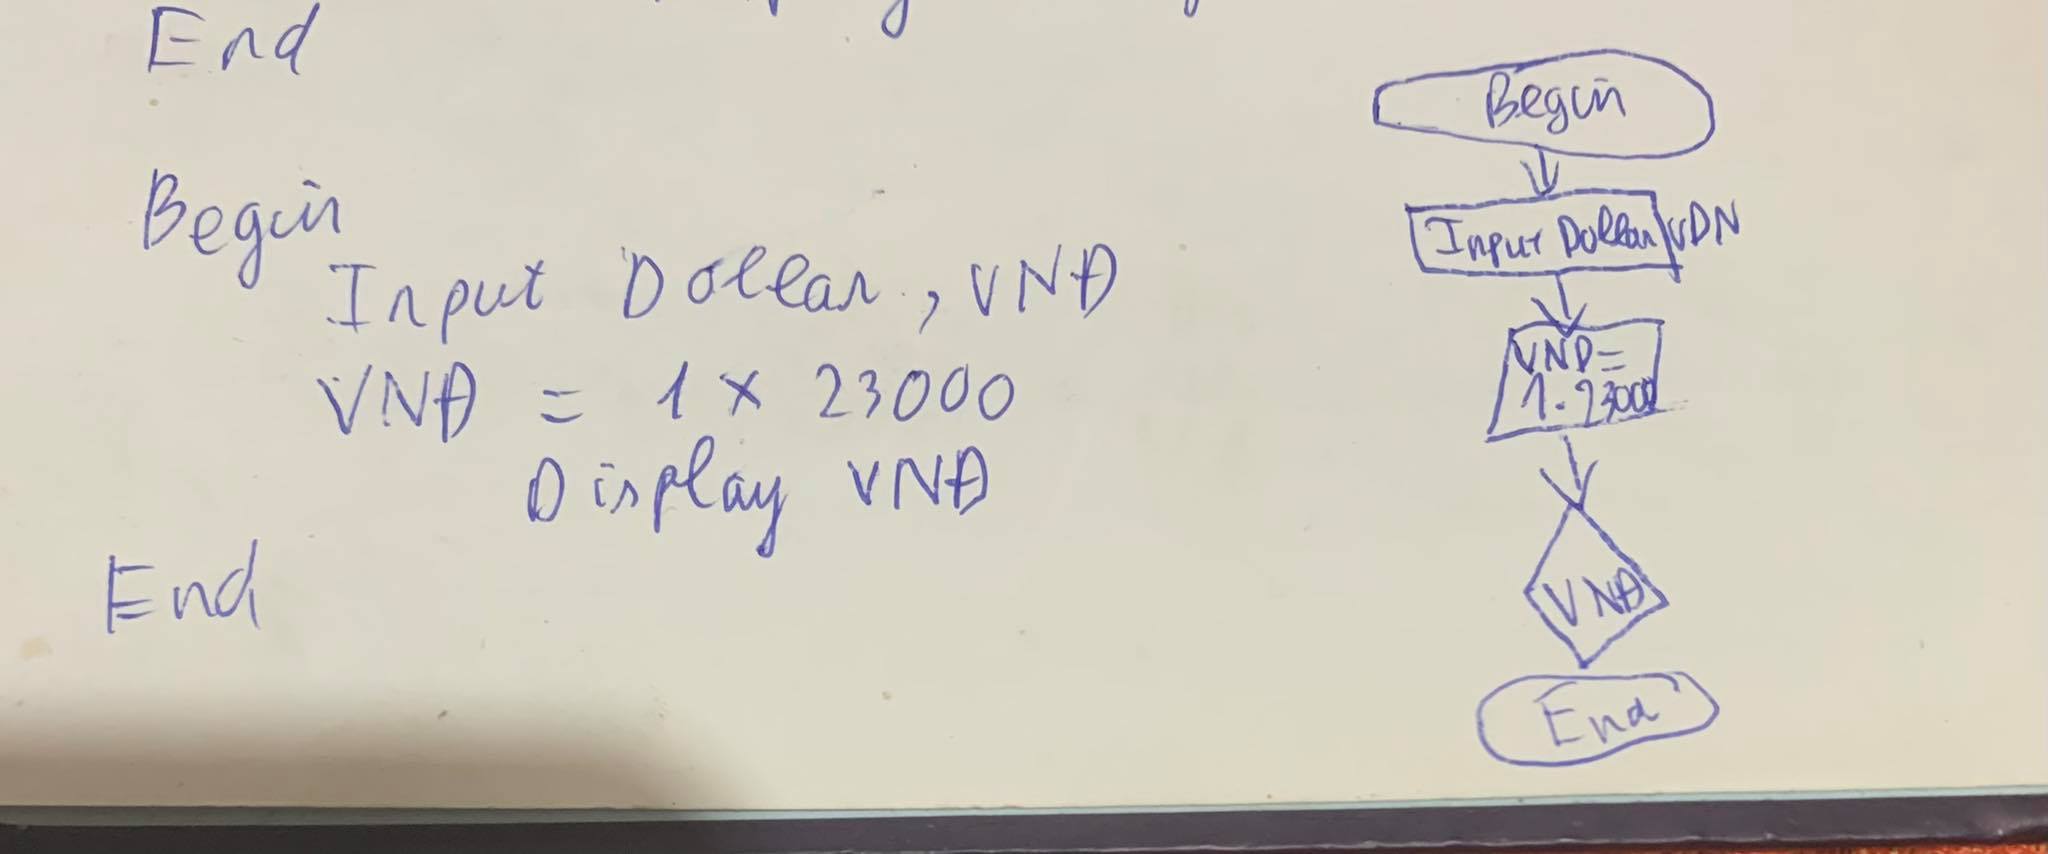 End
Begin
Input Dollar, VNĐ
VNĐ = 1 x 23000
Display VNĐ
End
Begin
Input Dollar, VDN
VNĐ =
1.23000
VNĐ
End